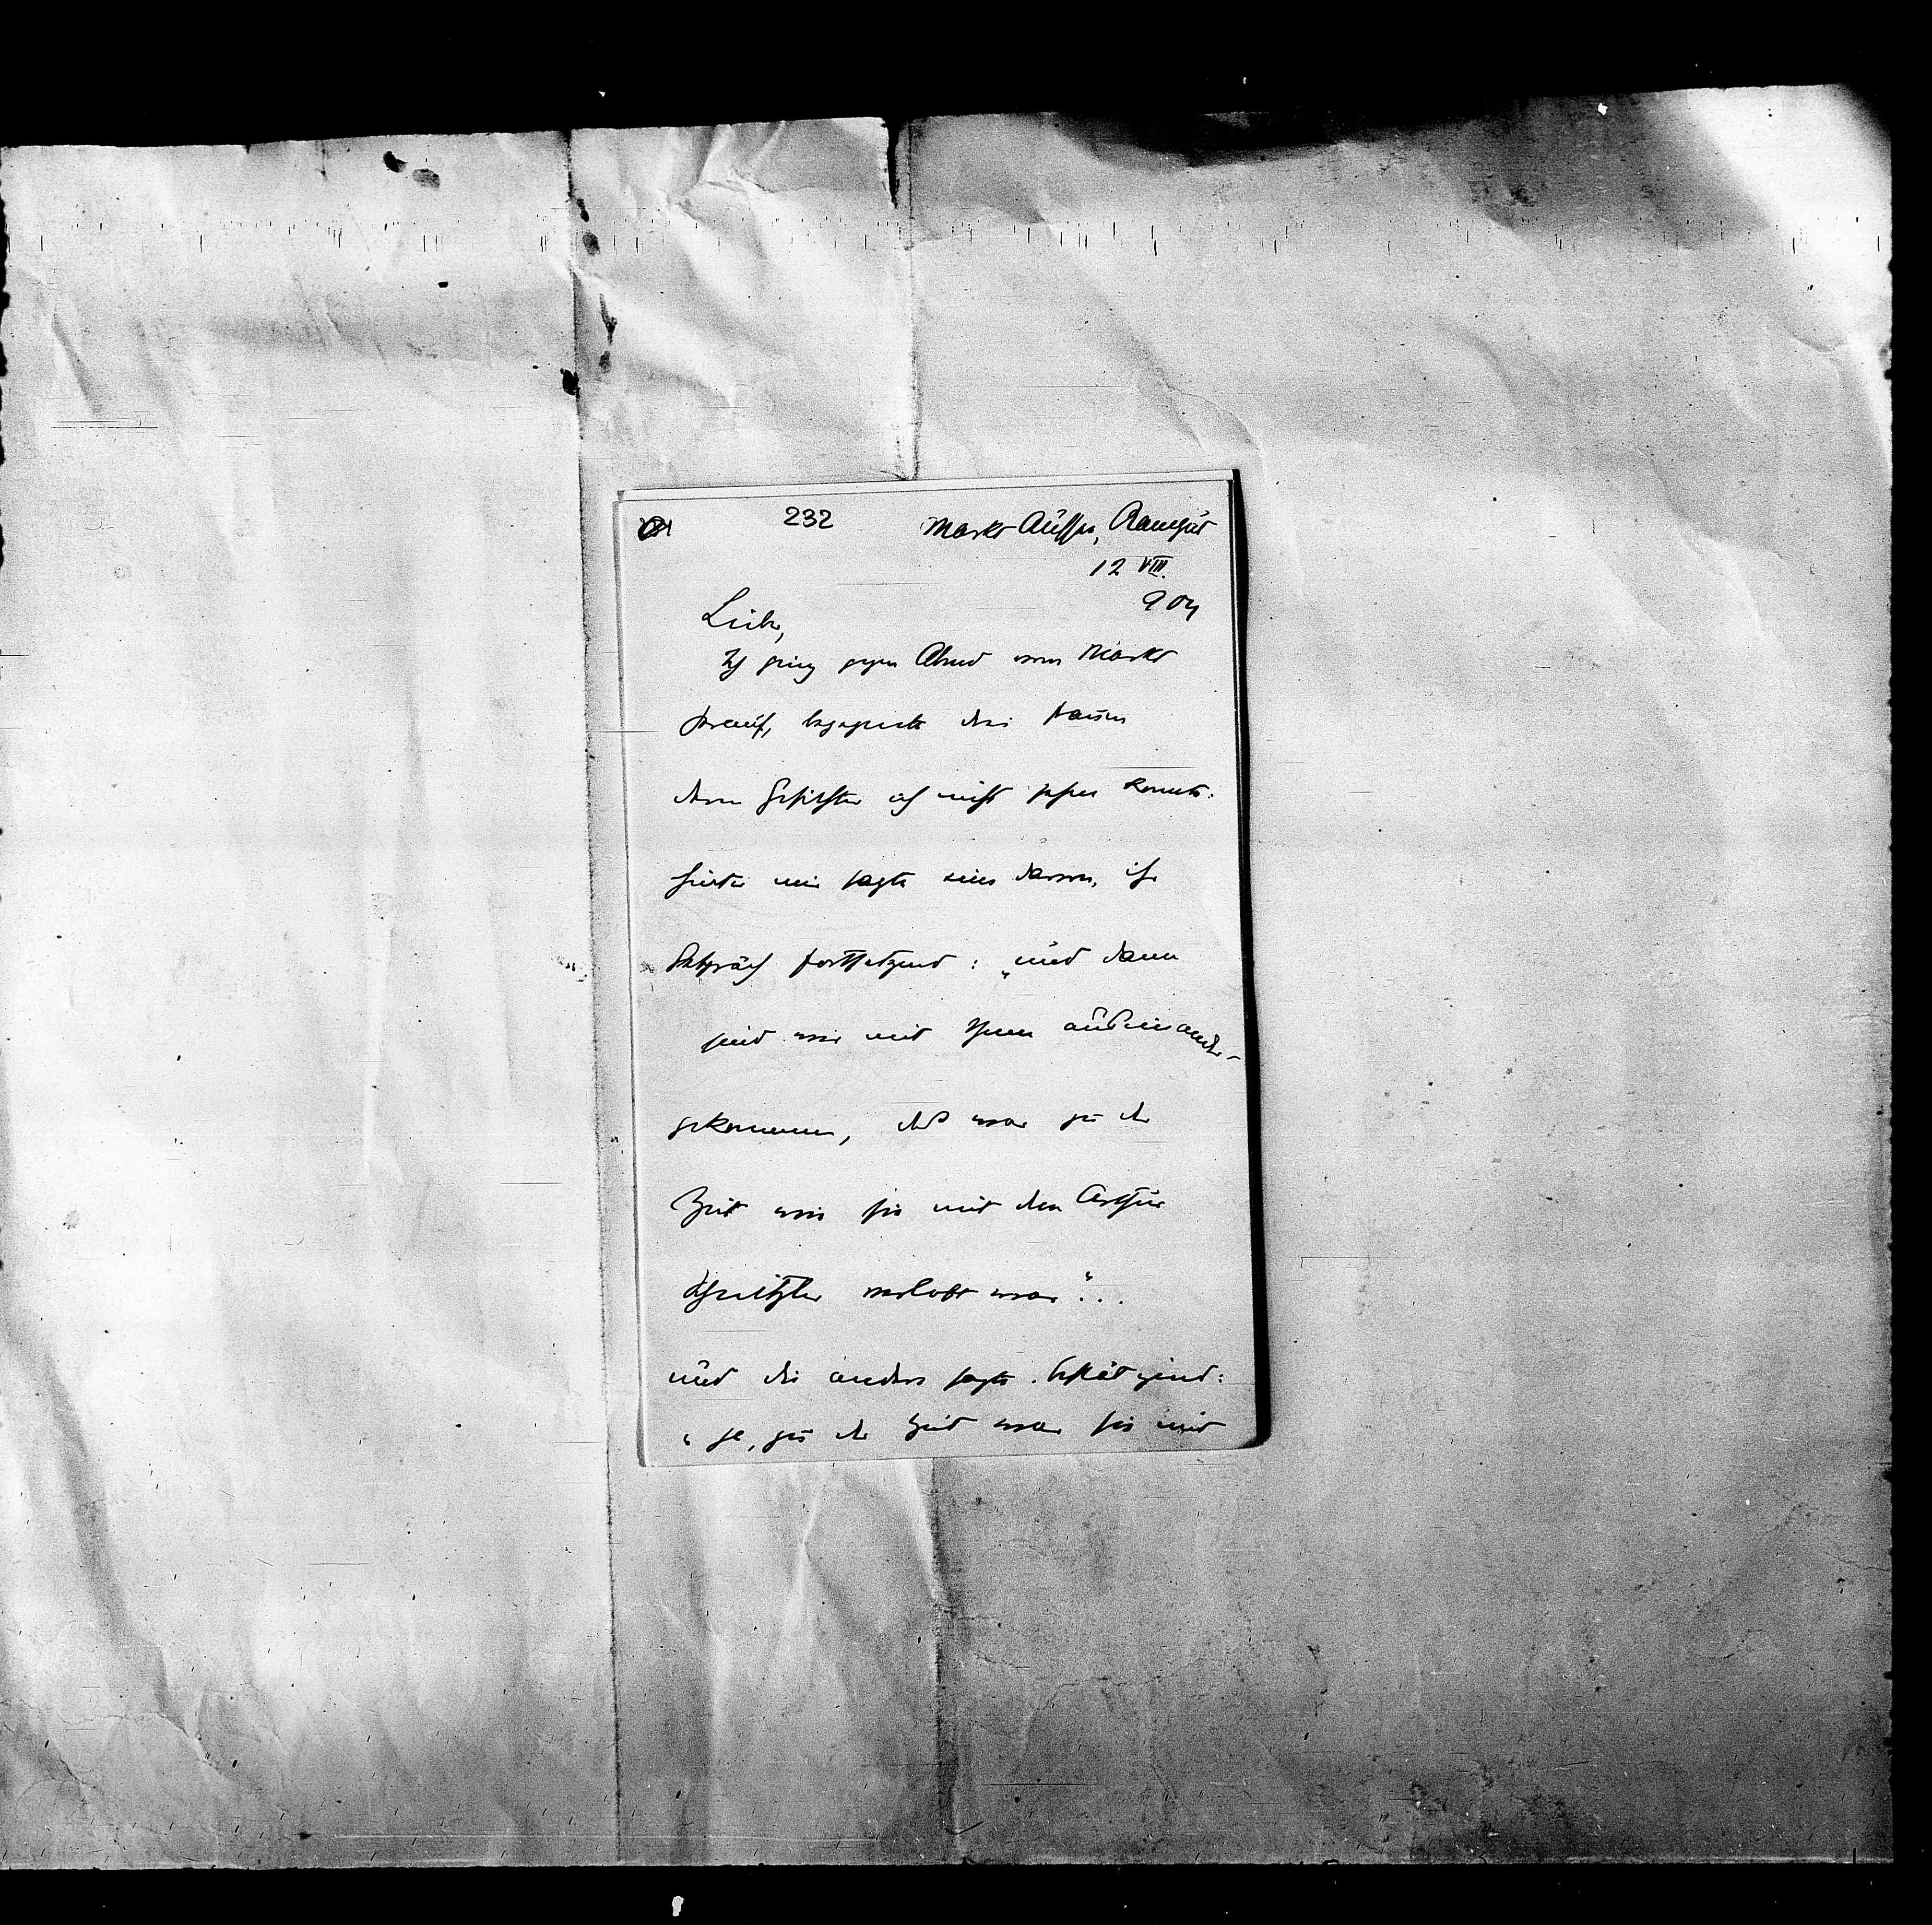 232
Markt Aussee, Ramgut
12 VIII.
904
Lieber,
Ich ging gegen Abend vom Markt
herauf, begegnete drei Frauen
deren Gesichter ich nicht sehen konnte.
hinter mir sagte eine davon, ihr
Gespräch fortsetzend: „und dann
sind wir mit ihnen auseinander-
gekommen, das war zu der
Zeit wie sie mit dem Arthur
Schnitzler verlobt war“...
und die andere sagte bestätigend:
„ja, zu der Zeit war sie mit